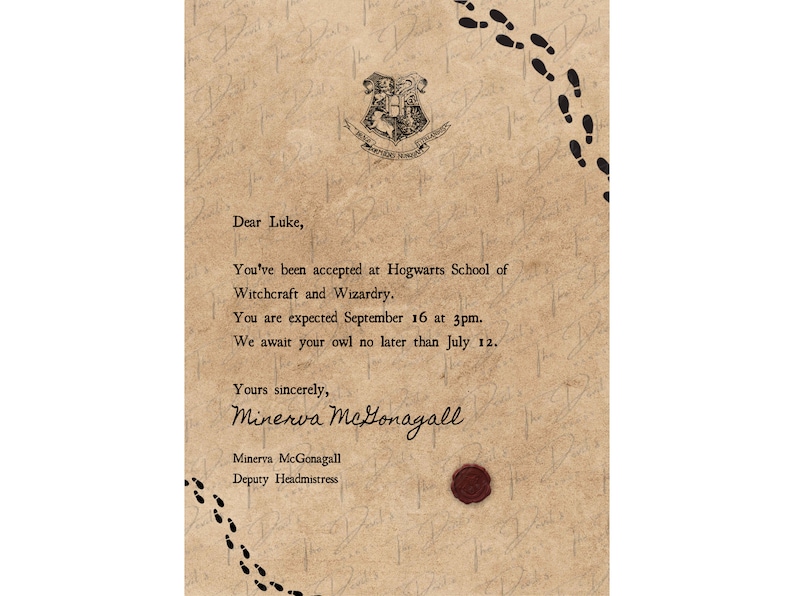 DRACO DORMIENS NUNQUAM TITILLANDUS
Dear Luke,
You've been accepted at Hogwarts School of
Witchcraft and Wizardry.
You are expected September 16 at 3pm.
We await your owl no later than July 12.
Yours sincerely,
Minerva McGonagall
Minerva McGonagall
Deputy Headmistress